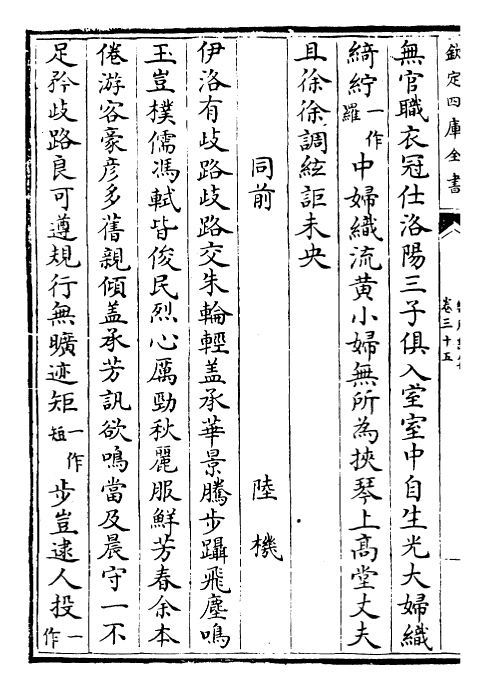 欽定四庫全書
卷三十五
無官職衣冠仕洛陽三子俱入室室中自生光大婦織
綺紵一作羅中婦織流黃小婦無所為挾琴上髙堂丈夫
且徐徐調絃詎未央
同前 陸機
伊洛有歧路歧路交朱輪輕盖承華景騰步躡飛塵鳴
玉豈樸儒馮軾皆俊民烈心厲勁秋麗服鮮芳春余本
倦游客豪彦多舊親傾盖承芳訊欲鳴當及晨守一不
足矜歧路良可遵規行無曠迹矩一作短步豈逮人投一作